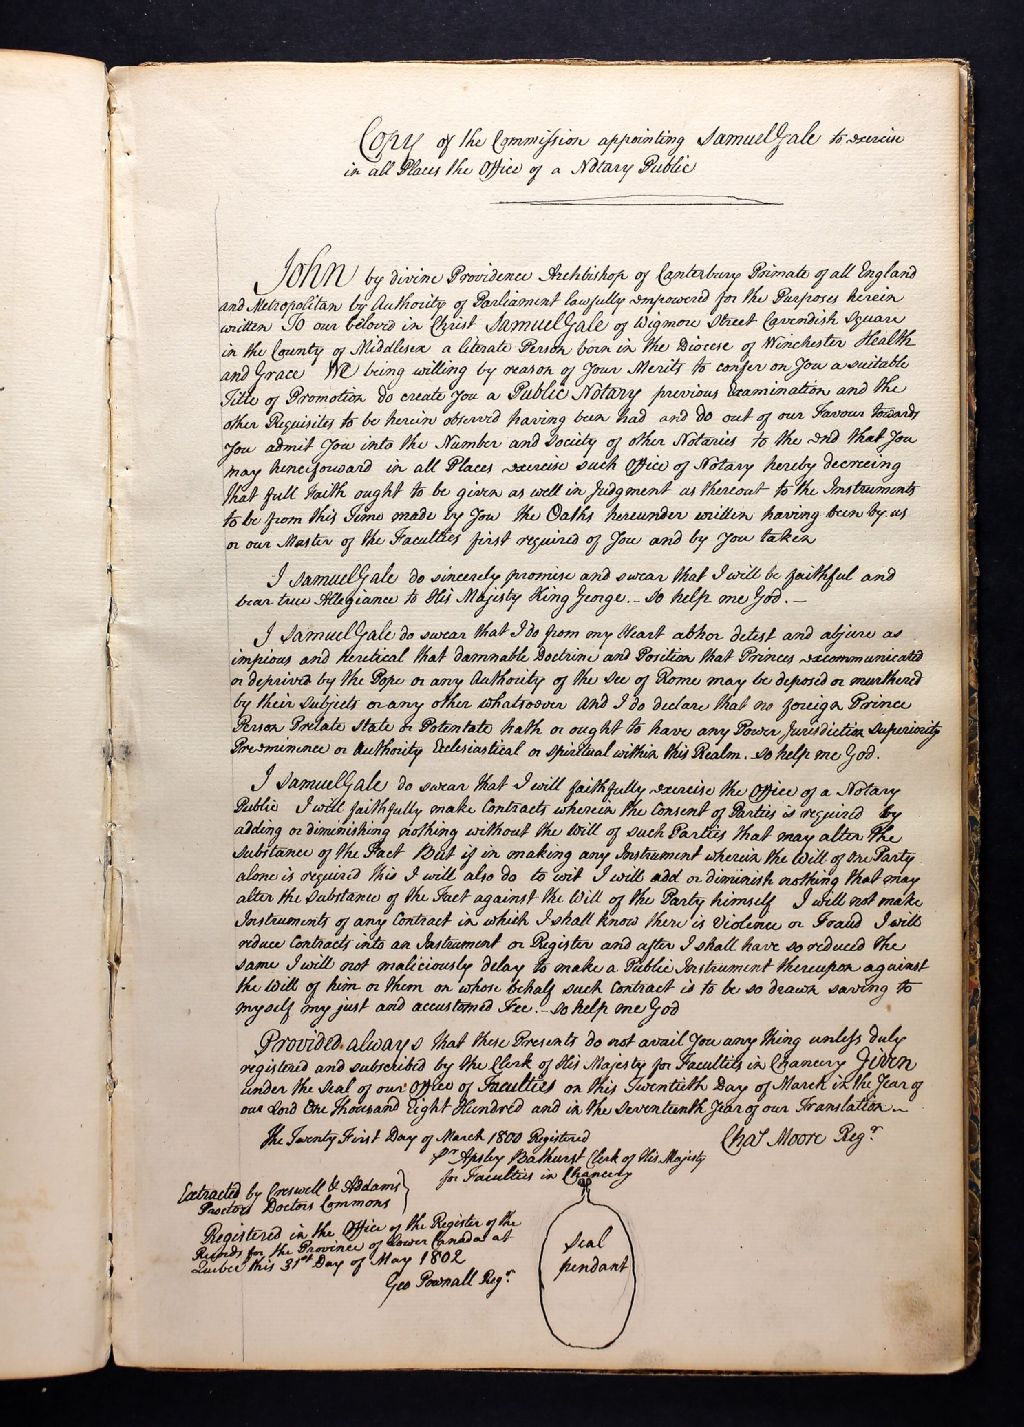 Copy of the Commission appointing Samuel Gale to exercise
in all Places the Office of a Notary Public
John by divine Providence Archbishop of Canterbury Primate of all England
and Metropolitan by Authority of Parliament lawfully empowered for the Purposes herein
written To our beloved in Christ Samuel Gale of Wigmore Street Cavendish Square
in the County of Middlesex a literate Person born in the Diocese of Winchester Health
and Grace We being willing by reason of Your Merits to confer on You a suitable
Title of Promotion do create You a Public Notary previous Examination and the
other Requisites to be herein observ'd having been had and do out of our Favour towards
You admit You into the Number and Society of other Notaries to the End that You
may henceforward in all Places exercise such Office of Notary hereby decreeing
that full Faith ought to be given as well in Judgment as thereout to the Instruments
to be from this Time made by You the Oaths hereunder written having been by us
or our Master of the Faculties first required of You and by You taken
I Samuel Gale do sincerely promise and swear that I will be faithful and
bear true Allegiance to His Majesty King George. – So help me God. –
I Samuel Gale do swear that I do from my Heart abhor detest and abjure as
impious and heretical that damnable Doctrine and Position that Princes excommunicated
or deprived by the Pope or any Authority of the See of Rome may be deposed or murthered
by their Subjects or any other whatsoever And I do declare that no foreign Prince
Person Prelate State or Potentate hath or ought to have any Power Jurisdiction Superiority
Preeminence or Authority Ecclesiastical or Spiritual within this Realm. So help me God.
I Samuel Gale do swear that I will faithfully exercise the Office of a Notary
Public I will faithfully make Contracts wherein the Consent of Parties is required by
adding or diminishing nothing without the Will of such Parties that may alter the
Substance of the Fact But if in making any Instrument wherein the Will of one Party
alone is required this I will also do to wit I will add or diminish nothing that may
alter the Substance of the Fact against the Will of the Party himself I will not make
Instruments of any Contract in which I shall know there is Violence or Fraud I will
reduce Contracts into an Instrument or Register and after I shall have so reduced the
same I will not maliciously delay to make a Public Instrument thereupon against
the Will of him or them on whose behalf such Contract is to be so drawn saving to
myself my just and accustomed Fee. – So help me God
Provided always that these Presents do not avail You any thing unless duly
registered and subscribed by the Clerk of His Majesty for Faculties in Chancery Given
under the Seal of our Office of Faculties on this Twentieth Day of March in the Year of
our Lord One Thousand Eight Hundred and in the Seventeenth Year of our Translation. –
The Twenty First Day of March 1800 Registered
Chas Moore Regr
Pr Apsley Bathurst Clerk of His Majesty
for Faculties in Chancery
Extracted by Creswell & Addams
Proctors Doctors Commons
Registered in the Office of the Register of the
Records for the Province of Lower Canada at
Quebec this 31st Day of May 1802
Geo Pownall Regr
Seal
pendant